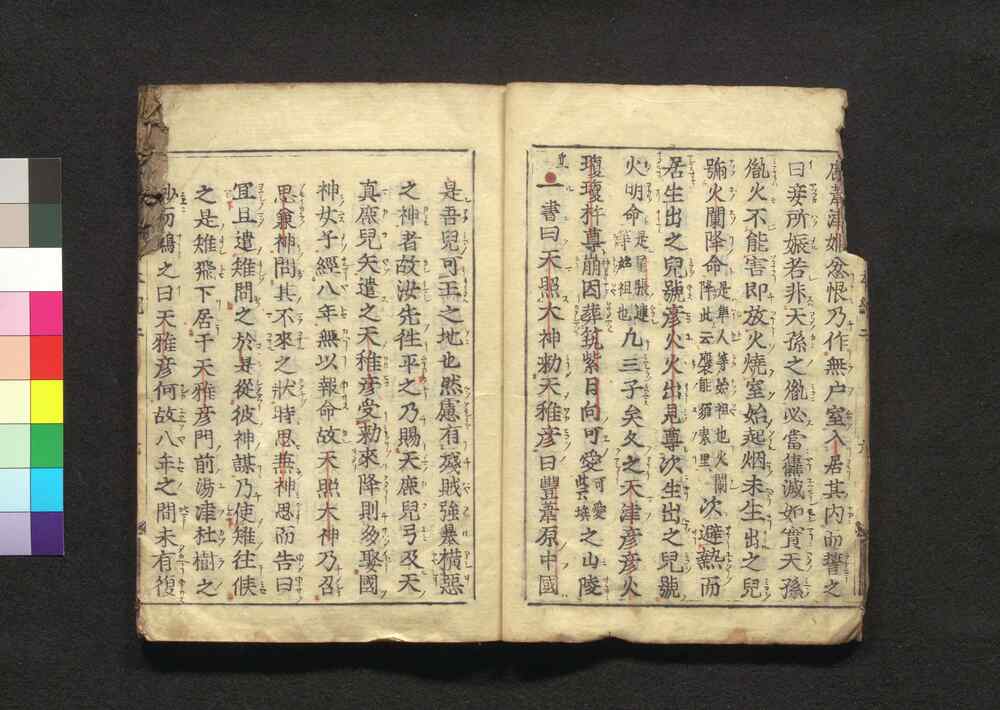 鹿葦津姬忿恨乃作無戸室入居其内而誓之
曰妾所娠若非天孫之胤必當𤓪滅如實天孫
胤火不能害即放火燒室始起烟末生出之兒
號火闌降命是隼人等始祖也火闌降此云褒能須素里次避熱而
居生出之兒號彦火火出見尊次生出之兒號
火明命是尾張連等始祖也凡三子矣久之天津彦彦火
瓊瓊杵尊崩因葬筑紫日向可愛可愛此云埃之山陵
一書曰天照大神勅天稚彦曰豐葦原中國
是吾兒可王之地也然慮有殘賊強暴横惡
之神者故汝先往平之乃賜天鹿兒弓及天
真鹿兒矢遣之天稚彦受勅來降則多娶國
神女子經八年無以報命故天照大神乃召
思兼神問其不來之狀時思兼神思而告曰
宜且遣雉問之於是從彼神謀乃使雉往候
之是雉飛下居于天稚彦門前湯津杜樹之
杪而鳴之曰天稚彦何故八年之間未有復